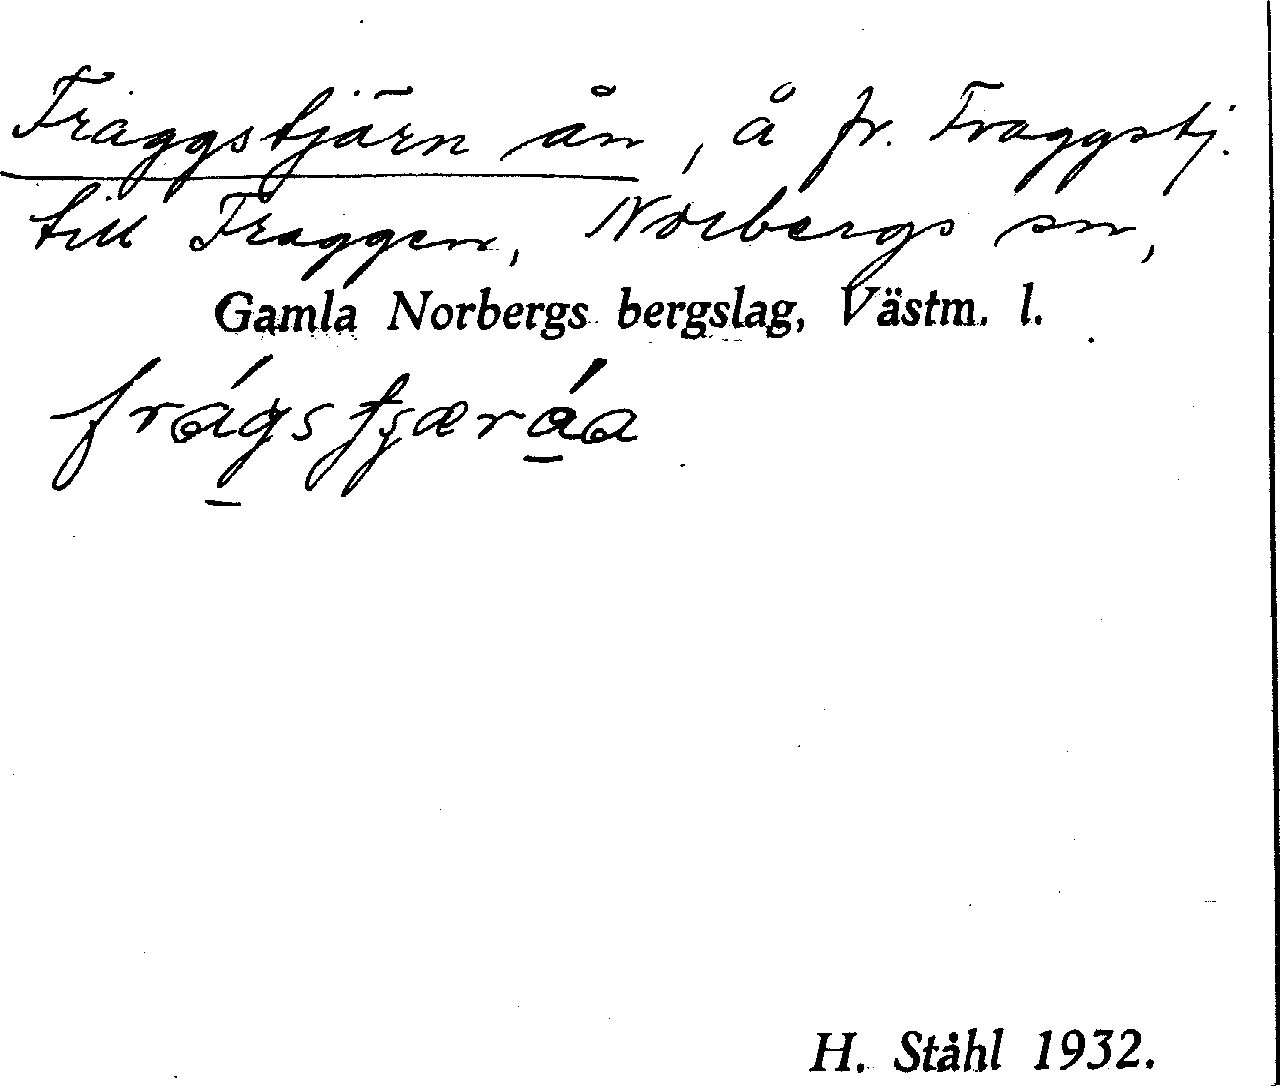 Fraggstjärn ån, å fr. Fraggstj.
till Fraggen, Norbergs sn,
Gamla Norbergs bergslag, Västm. l.
frágstjæráa
H. Ståhl 1932.